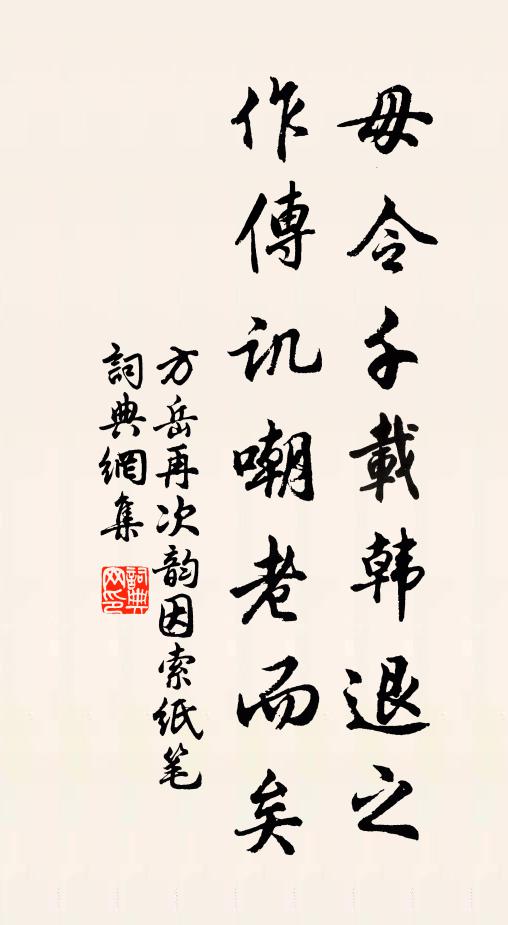 毋令千載韩退之
作傳讥嘲老而矣
方岳再次韵因索纸笔
詞典網集
詞典网印